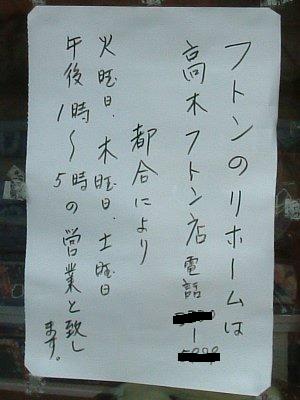 フトンのリホームは
高木フトン店電話
都合により
火曜日．木曜日．土曜日
午後1時〜5時の営業と致し
ます。